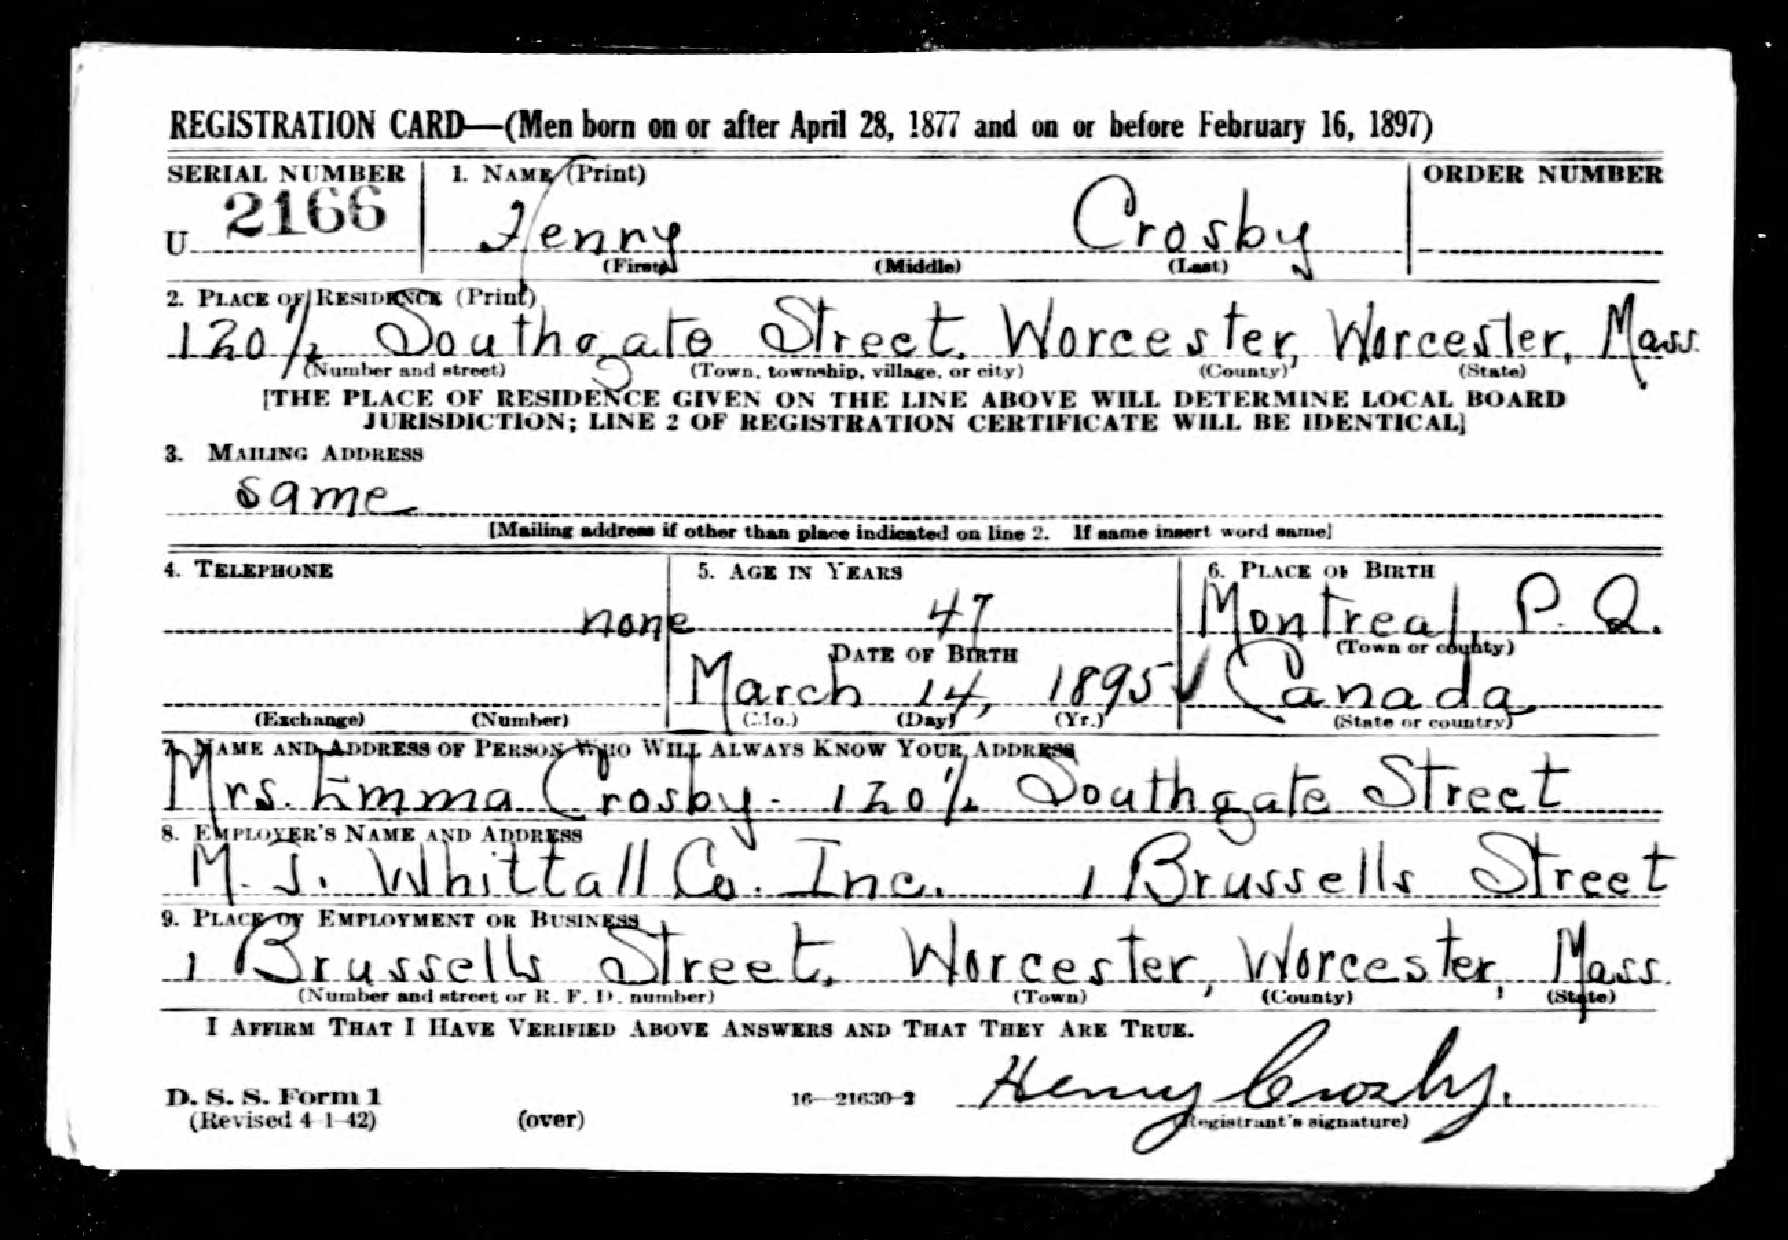 REGISTRATION CARD—(Men born on or after April 28, 1877 and on or before February 16, 1897)
SERIAL NUMBER 1. NAME (Print) ORDER NUMBER
U 2166 Henry Crosby
(First) (Middle) (Last)
2. PLACE OF RESIDENCE (Print)
120½ Southgate Street, Worcester, Worcester, Mass.
(Number and street) (Town, township, village, or city) (County) (State)
[THE PLACE OF RESIDENCE GIVEN ON THE LINE ABOVE WILL DETERMINE LOCAL BOARD
JURISDICTION; LINE 2 OF REGISTRATION CERTIFICATE WILL BE IDENTICAL]
3. MAILING ADDRESS
same
[Mailing address if other than place indicated on line 2. If same insert word same]
4. TELEPHONE 5. AGE IN YEARS 6. PLACE OF BIRTH
none 47 Montreal, P. Q.
DATE OF BIRTH (Town or county)
March 14, 1895 Canada
(Exchange) (Number) (Mo.) (Day) (Yr.) (State or country)
7. NAME AND ADDRESS OF PERSON WHO WILL ALWAYS KNOW YOUR ADDRESS
Mrs. Emma Crosby. 120½ Southgate Street
8. EMPLOYER'S NAME AND ADDRESS
M. J. Whittall Co. Inc. 1 Brussells Street
9. PLACE OF EMPLOYMENT OR BUSINESS
1 Brussells Street, Worcester, Worcester, Mass.
(Number and street or R. F. D. number) (Town) (County) (State)
I AFFIRM THAT I HAVE VERIFIED ABOVE ANSWERS AND THAT THEY ARE TRUE.
D. S. S. Form 1 16—21630-2 Henry Crosby.
(Revised 4-1-42) (over) (Registrant's signature)